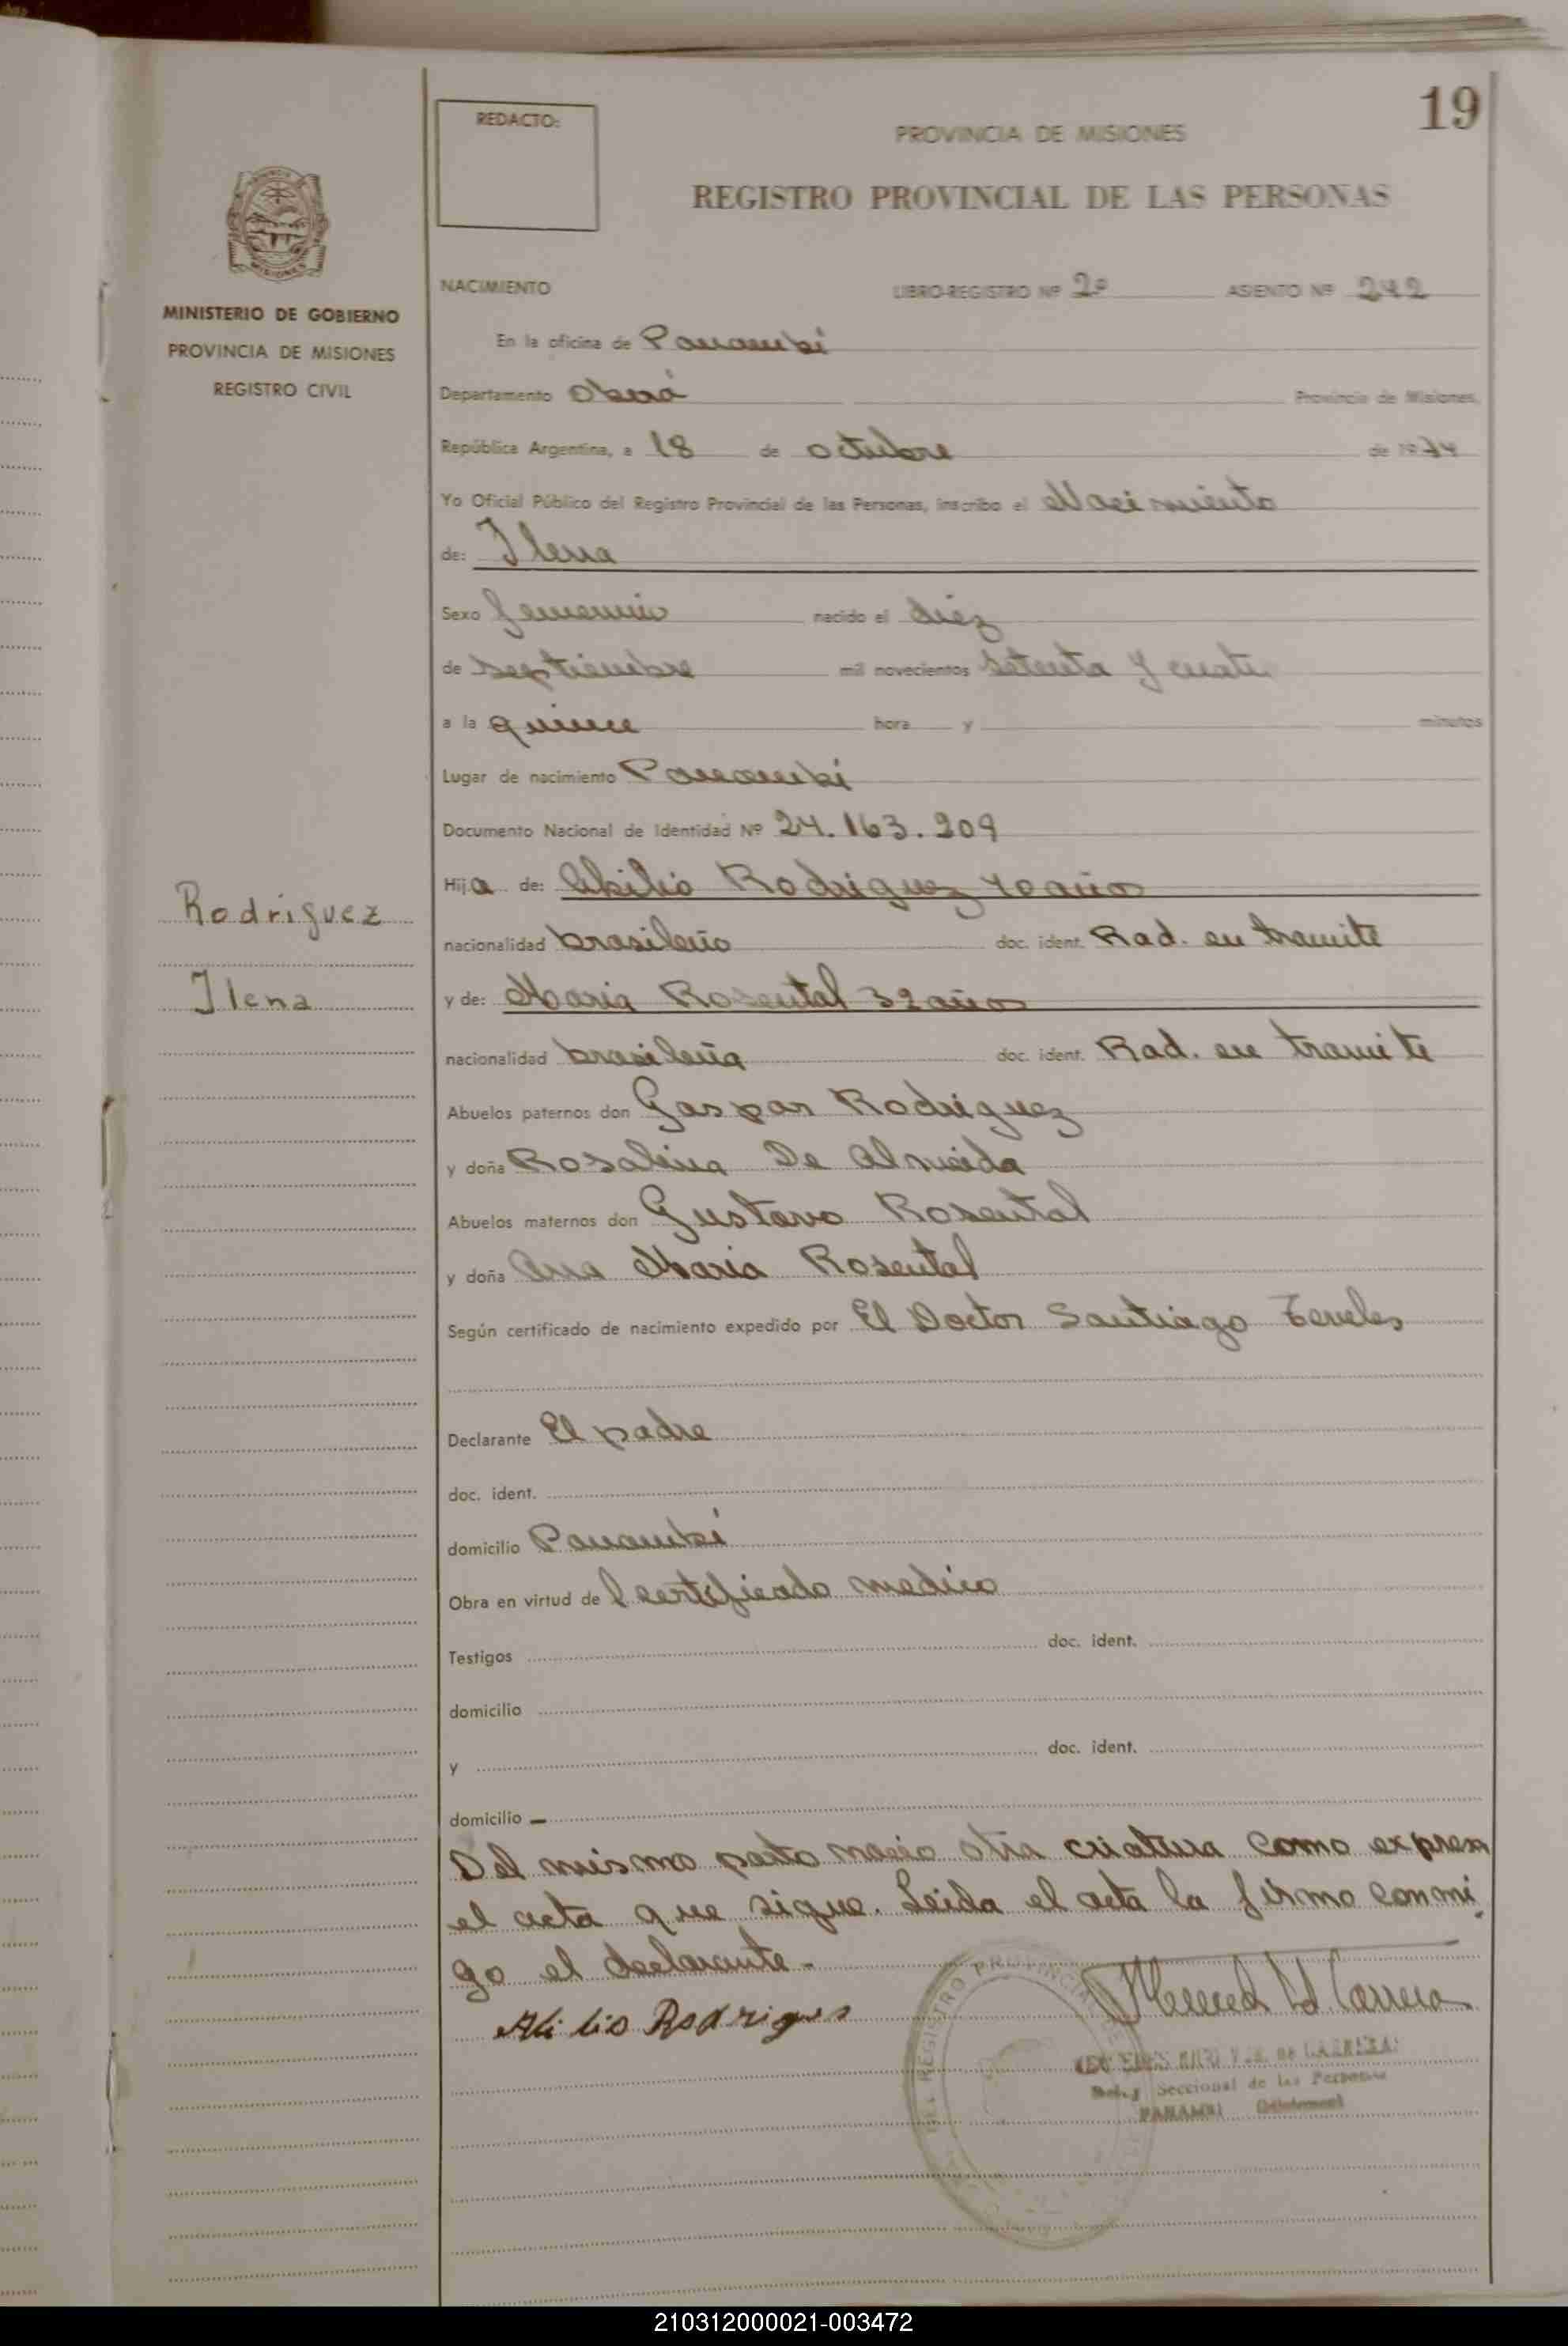 19
REDACTO:
PROVINCIA DE MISIONES
REGISTRO PROVINCIAL DE LAS PERSONAS
MINISTERIO DE GOBIERNO
PROVINCIA DE MISIONES
REGISTRO CIVIL
NACIMIENTO LIBRO-REGISTRO Nº 2º ASIENTO Nº 242
En la oficina de Panambí
Departamento Oberá Provincia de Misiones,
República Argentina, a 18 de octubre de 1974
Yo Oficial Público del Registro Provincial de las Personas, inscribo el Nacimiento
de: Ilena
Sexo femenino nacido el diez
de septiembre mil novecientos setenta y cuatro
a la quince hora y minutos
Lugar de nacimiento Panambí
Documento Nacional de Identidad Nº 24.163.209
Hija de: Abilio Rodriguez 40 años
nacionalidad brasileño doc. ident. Rad. en tramite
Rodriguez
Ilena
y de: Maria Rosental 32 años
nacionalidad brasileña doc. ident. Rad. en tramite
Abuelos paternos don Gaspar Rodriguez
y doña Rosalina De Almeida
Abuelos maternos don Gustavo Rosental
y doña Ana Maria Rosental
Según certificado de nacimiento expedido por El Doctor Santiago
Declarante El padre
doc. ident.
domicilio Panambí
Obra en virtud de l certificado medico
Testigos doc. ident.
domicilio
y doc. ident.
domicilio
Del mismo parto nacio otra criatura como expresa
el acta que sigue. Leida el acta la firma conmi
go el declarante.
Abilio Rodrigues
DEL REGISTRO PROVINCIAL
Seccional de las Personas
PANAMBI
210312000021-003472